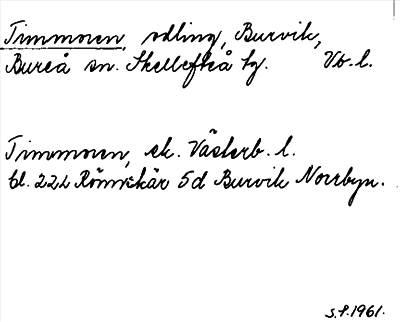 Timmoren, odling, Burvik,
Bureå sn. Skellefteå tg. Vb. l.
Timmoren, ek. Västerb. l.
bl. 22L Rönnskär 5d Burvik Norrbyn.
S.P. 1961.